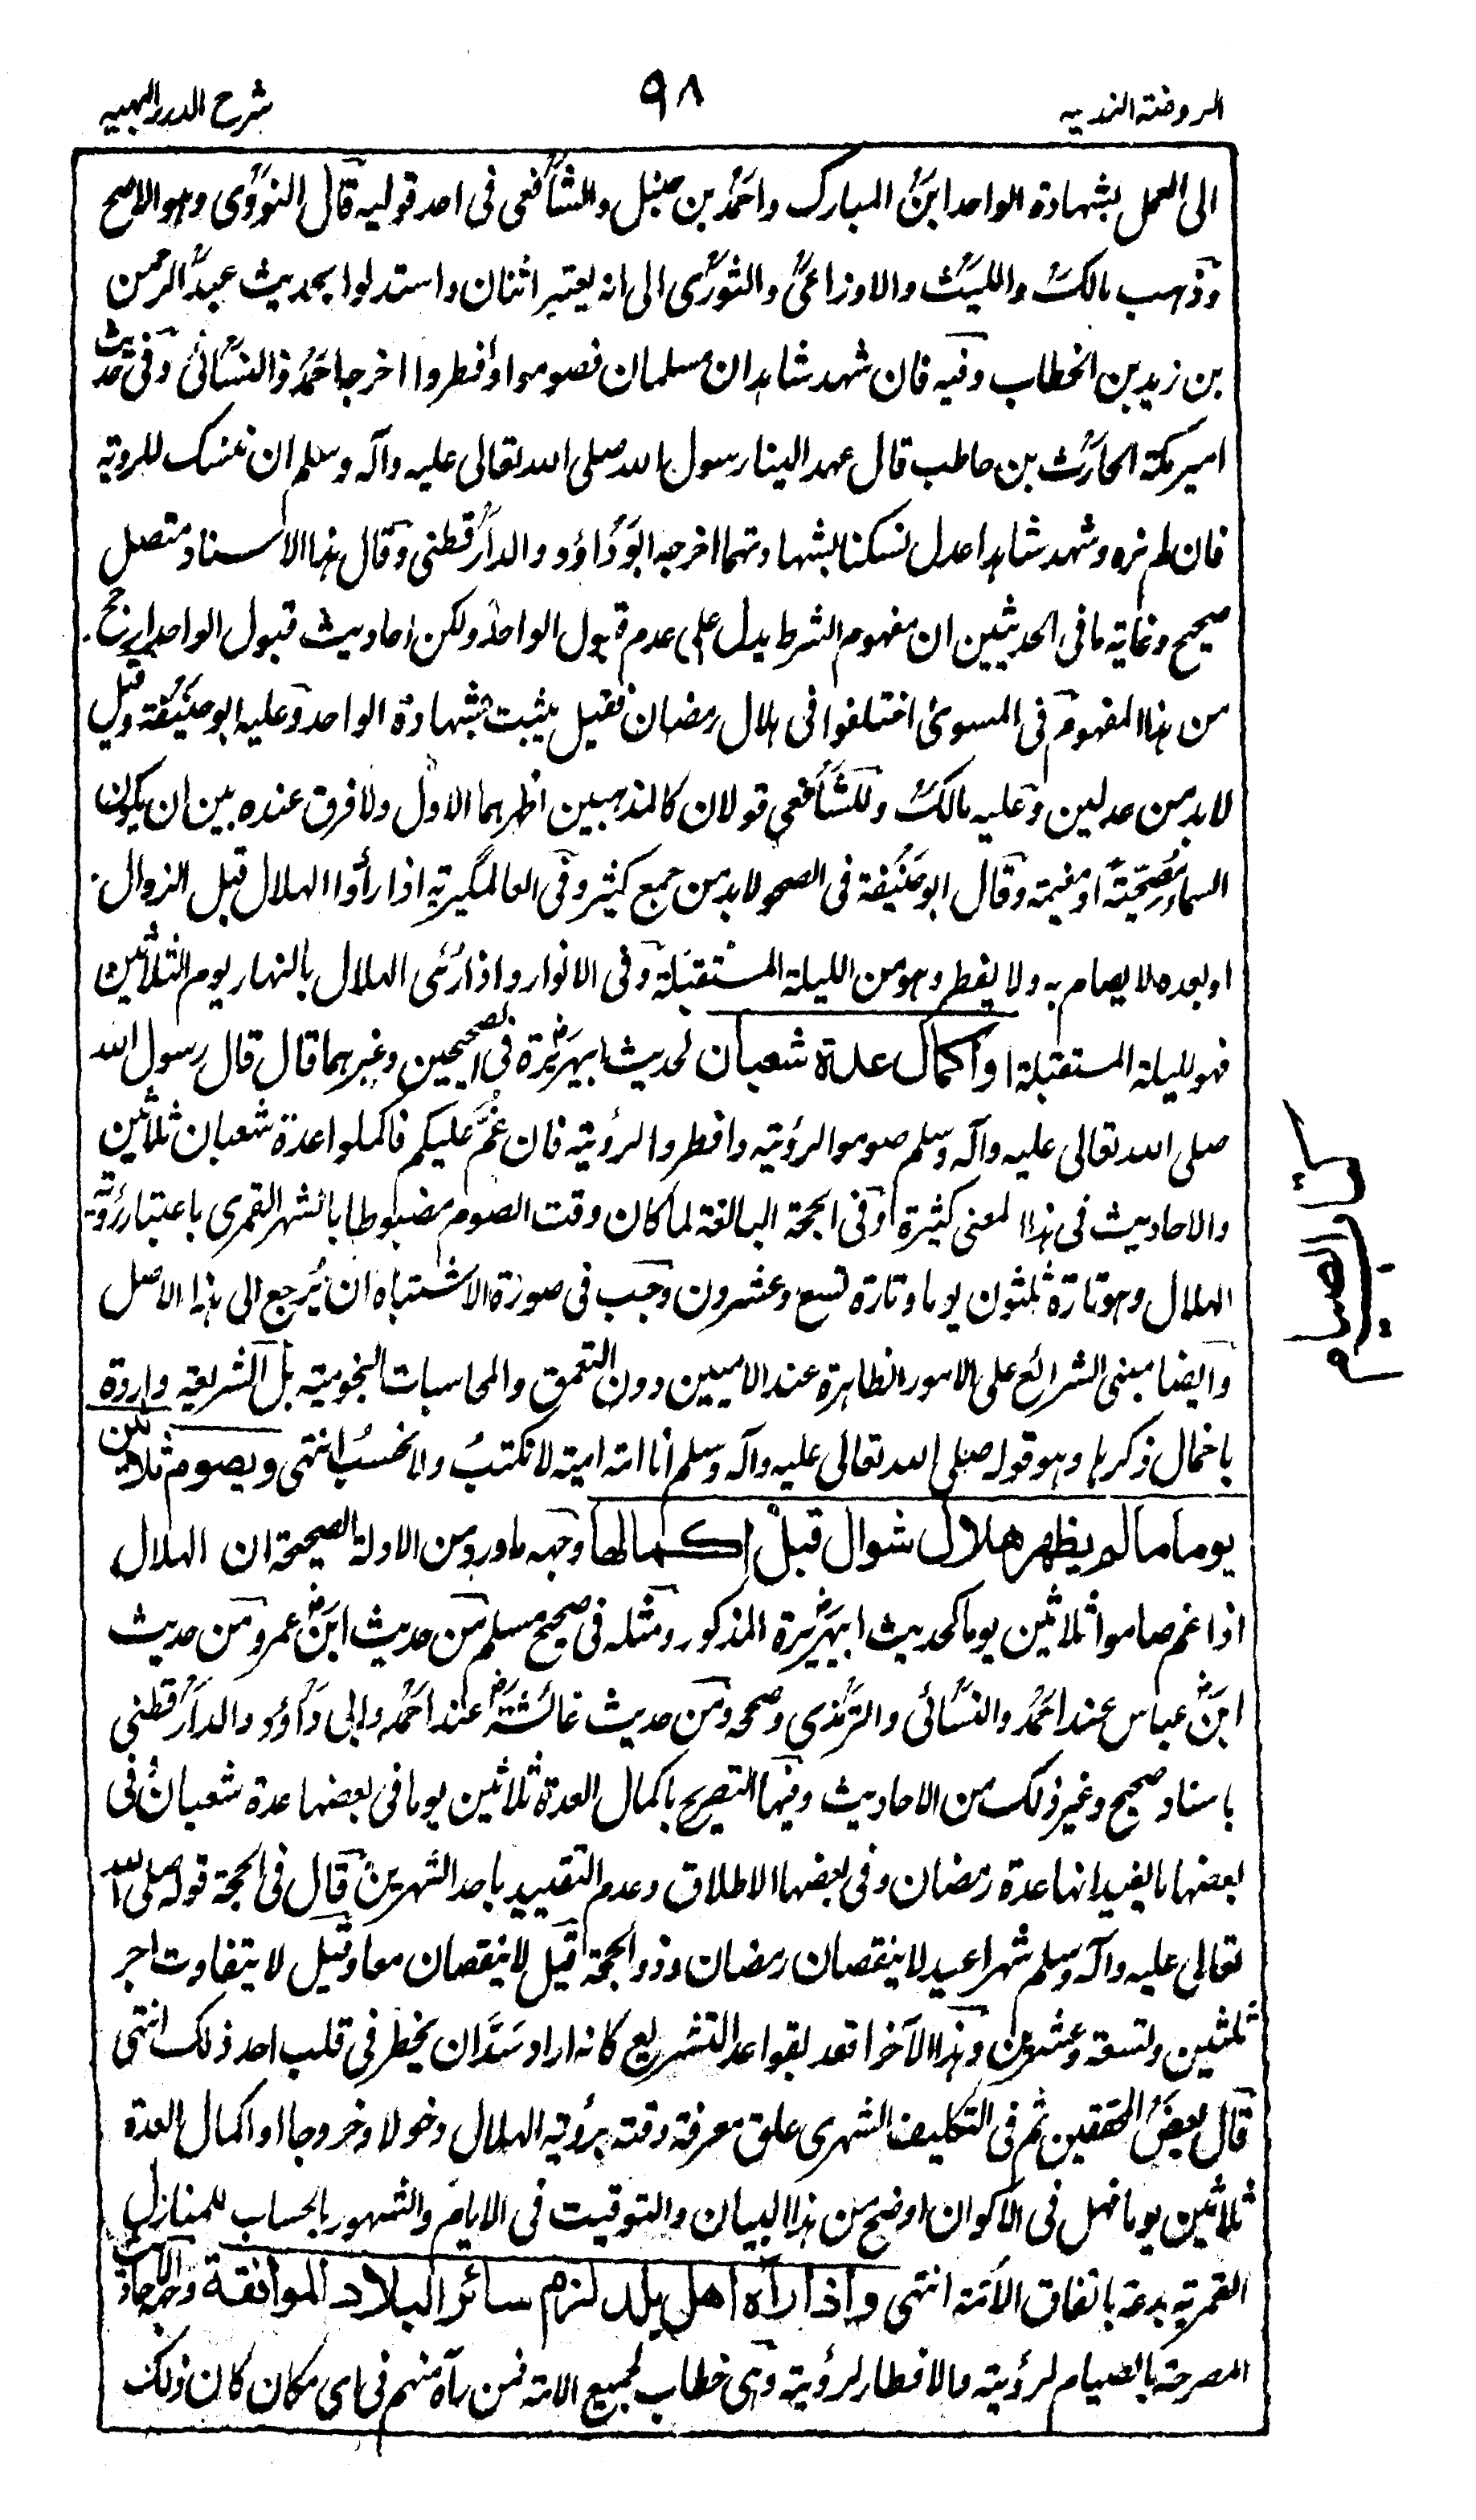 الروضة الندية
٩٨
شرح الدرر البهية
الى العمل بشهادة الواحد ابن المبارك واحمد بن حنبل والشافعى فى احد قوليه قال النووى وهو الاصح
وذهب مالك والليث والاوزاعى والثورى الى انه يعتبر اثنان واستدلوا بحديث عبد الرحمن
بن زيد بن الخطاب وفيه فان شهد شاهدان مسلمان فصوموا وافطروا اخرجه احمد والنسائى وفى حديث
امير مكة الحارث بن حاطب قال عهد الينا رسول الله صلى الله تعالى عليه وآله وسلم ان ننسك للروية
فان لم نره وشهد شاهدا عدل نسكنا بشهادتهما اخرجه ابو داؤد والدارقطنى وقال هذا الاسناد متصل
صحيح وغاية ما فى الحديثين ان مفهوم الشرط يدل على عدم قبول الواحد ولكن احاديث قبول الواحد ارجح
من هذا المفهوم فى المسوى اختلفوا فى هلال رمضان فقيل يثبت بشهادة الواحد وعليه ابو حنيفة وقيل
لا بد من عدلين وعليه مالك وللشافعى قولان كالمذهبين اظهرهما الاول ولا فرق عنده بين ان يكون
السماء مصحية او مغيمة وقال ابو حنيفة فى الصحو لا بد من جمع كثير وفى العالمگيرية اذا رأوا الهلال قبل الزوال
او بعده لا يصام به ولا يفطر وهو من الليلة المستقبلة وفى الانوار واذا رئى الهلال بالنهار يوم الثلاثين
فهو لليلة المستقبلة او اكمال عدة شعبان لحديث ابيهريرة فى الصحيحين وغيرهما قال قال رسول الله
صلى الله تعالى عليه وآله وسلم صوموا لرؤيته وافطروا لرؤيته فان غم عليكم فاكملوا عدة شعبان ثلاثين
والاحاديث فى هذا المعنى كثيرة وفى الحجة البالغة لما كان وقت الصوم مضبوطا بالشهر القمرى باعتبار رؤية
الهلال وهو تارة ثلثون يوما وتارة تسع وعشرون وجب فى صورة الاشتباه ان يرجع الى هذا الاصل
وايضا مبنى الشرائع على الامور الظاهرة عند الاميين دون التعمق والمحاسبات النجومية بل الشريعة واردة
باخمال ذكرها وهو قوله صلى الله تعالى عليه وآله وسلم انا امة امية لا نكتب ولا نحسب انتهى ويصوم ثلاثين
يوما مالم يظهر هلال شوال قبل اكمالها وجهه ما ورد من الادلة الصحيحة ان الهلال
اذا غم صاموا ثلاثين يوما كحديث ابيهريرة المذكور ومثله فى صحيح مسلم من حديث ابن عمر ومن حديث
ابن عباس عند احمد والنسائى والترمذى وصححه ومن حديث عائشة عند احمد وابى داؤد والدارقطنى
باسناد صحيح وغير ذلك من الاحاديث وفيها التصريح باكمال العدة ثلاثين يوما فى بعضها عدة شعبان وفى
بعضها ما يفيد انها عدة رمضان وفى بعضها الاطلاق وعدم التقييد باحد الشهرين قال فى الحجة قوله صلى الله
تعالى عليه وآله وسلم شهرا عيد لا ينقصان رمضان وذو الحجة قيل لا ينقصان معا وقيل لا يتفاوت اجر
ثلثين وتسعة وعشرين وهذا الآخر اقعد بقواعد التشريع كانه اراد سد ان يخطر فى قلب احد ذلك انتهى
قال بعض المحققين ثم فى التكليف الشهرى علق معرفة وقته برؤية الهلال دخولا وخروجا او اكمال العدة
ثلاثين يوما فهل فى الاكوان اوضح من هذا البيان والتوقيت فى الايام والشهور بالحساب للمنازل
القمرية بدعة باتفاق الائمة انتهى واذا رآه اهل بلد لزم سائر البلاد الموافقة وجهه الاحاديث
المصرحة بالصيام لرؤيته والافطار لرؤيته وهى خطاب لجميع الامة فمن رآه منهم فى اى مكان كان ذلك
كتاب الصيام